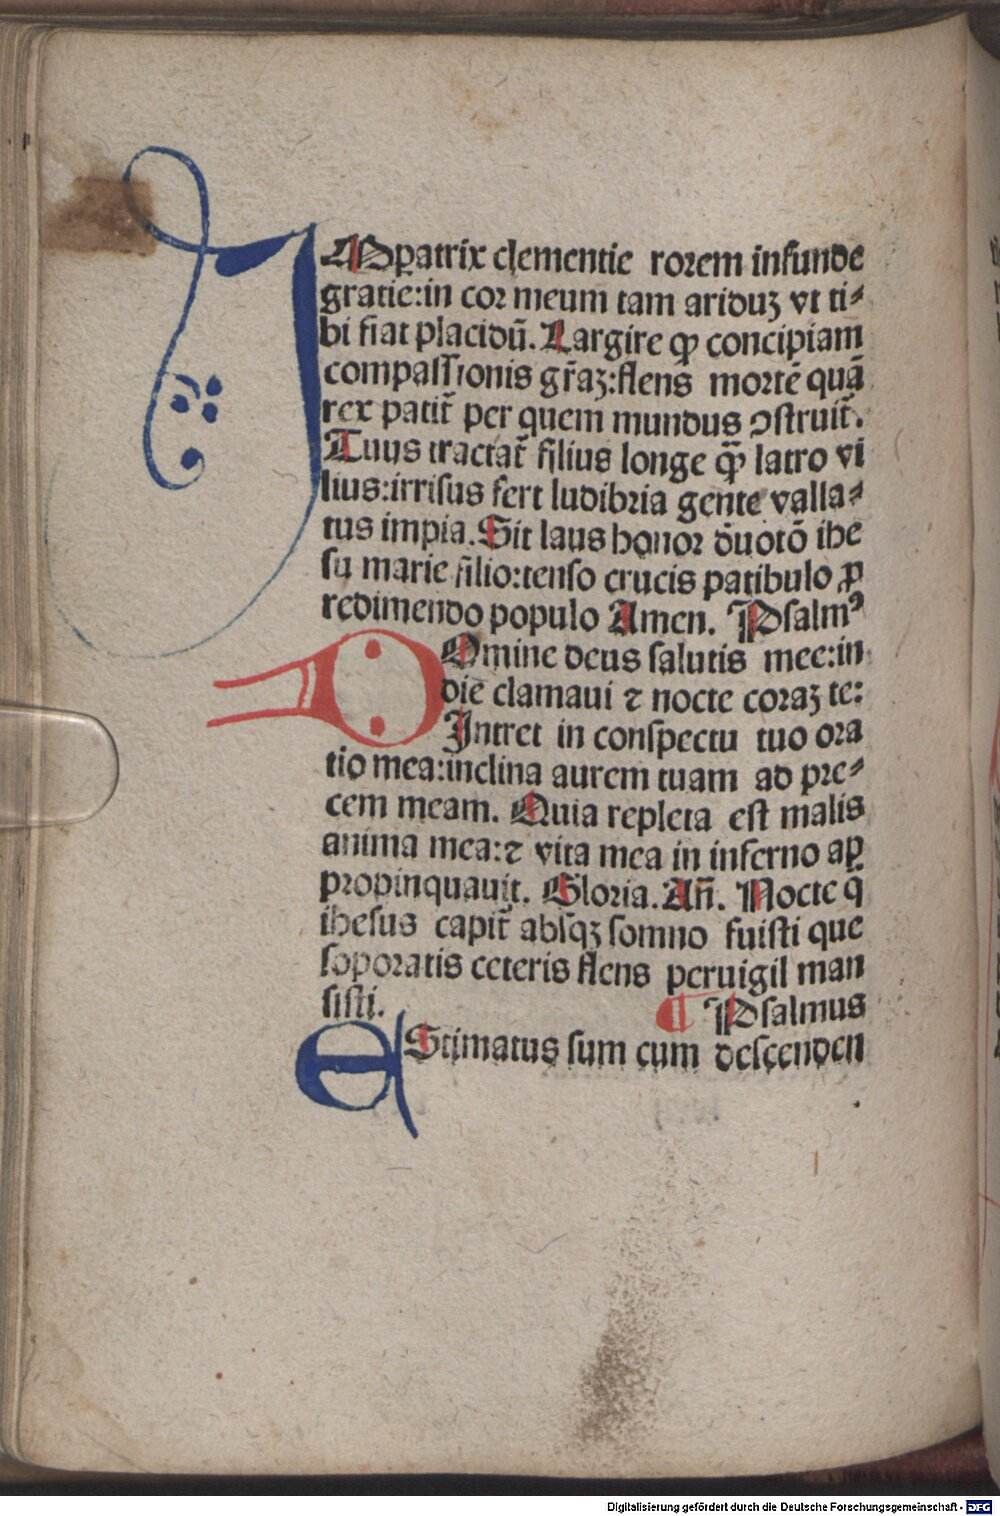 IMperatrix clementie rorem infunde
gratie:in cor meum tam ariduꝫ vt ti⸗
bi fiat placidū. Largire ꝙ concipiam
compaſſionis gr̄aꝫ:flens mortē quā
rex patit᷑ per quem mundus ꝯſtruit᷑.
Tuus tractat᷑ filius longe ꝙ̄ latro vi
lius:irriſus fert ludibria gente valla⸗
tus impia. Sit laus honor d̄uotō ihe
ſu marie filio:tenſo crucis patibulo ꝓ
redimendo populo Amen. Pſalmꝰ
DOmine deus ſalutis mee:in
die clamaui ⁊ nocte coraꝫ te:
Intret in conſpectu tuo ora
tio mea:inclina aurem tuam ad pre⸗
cem meam. Quia repleta eſt malis
anima mea:⁊ vita mea in inferno aꝑ
propinquauit. Gloria. Añ. Nocte q̄
iheſus capit᷑ abſqꝫ ſomno fuiſti que
ſoporatis ceteris flens peruigil man
ſiſti. ¶ Pſalmus
EStimatus ſum cum deſcenden
Digitalisierung gefördert durch die Deutsche Forschungsgemeinschaft - DFG